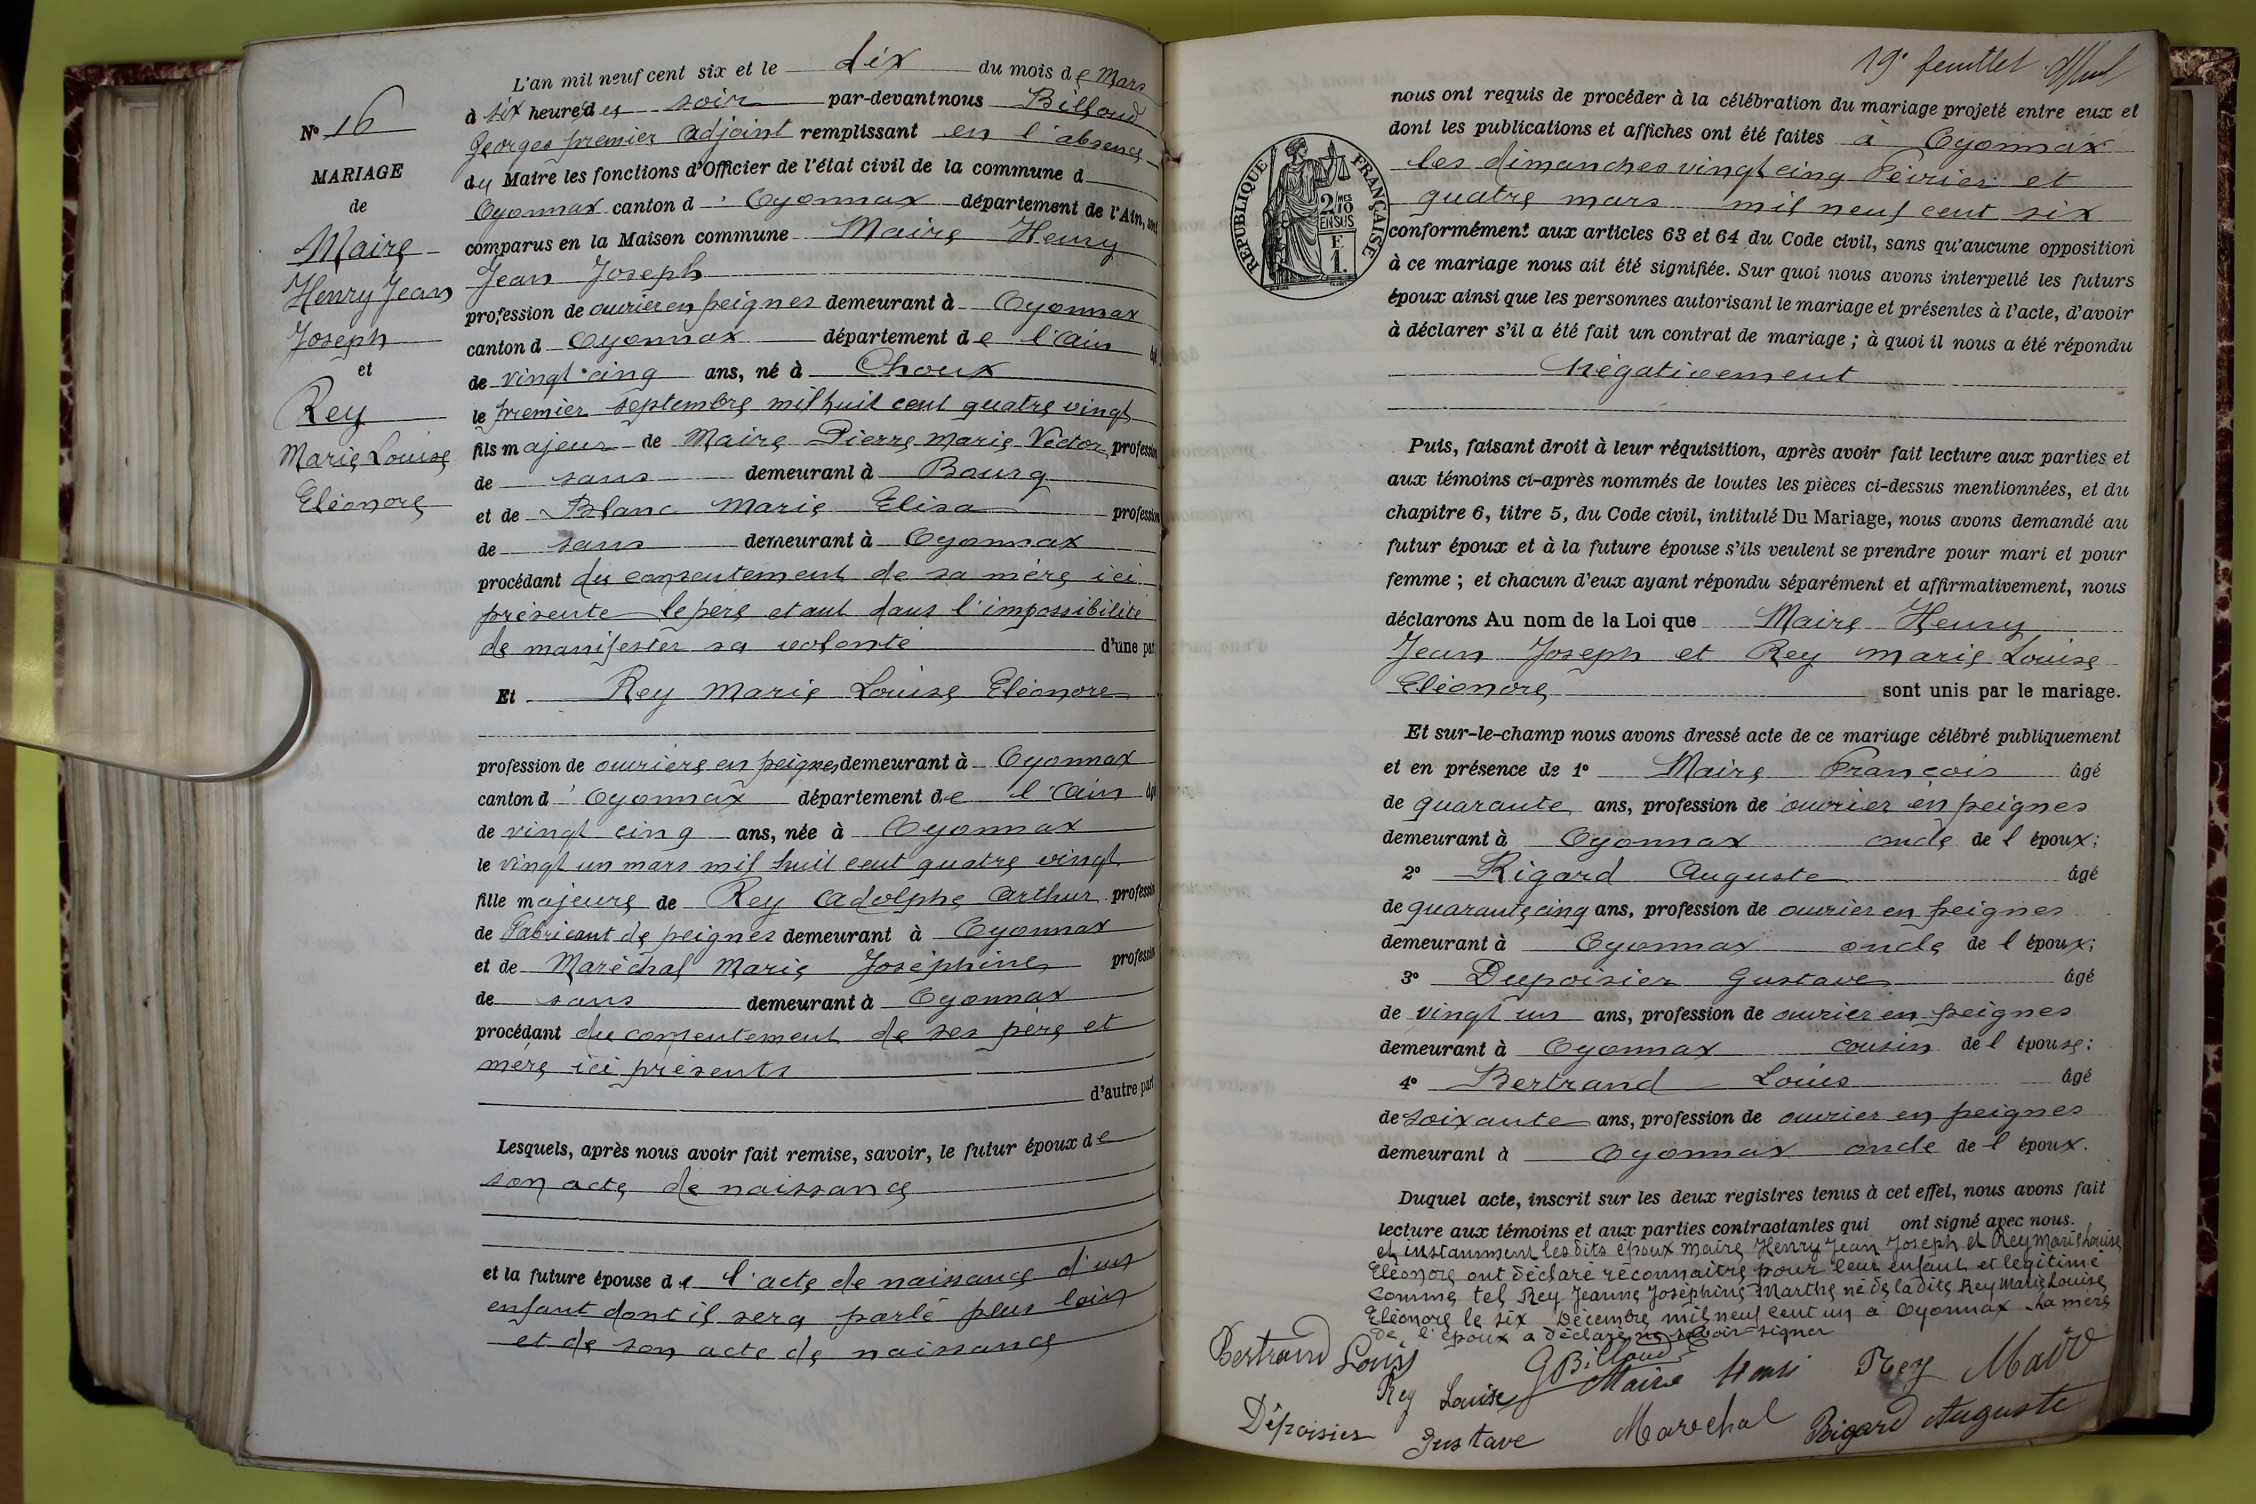 N° 16
MARIAGE
de
Maire
Henry Jean
Joseph
et
Rey
Marie Louise
Eléonore
L'an mil neuf cent six et le dix du mois de Mars
à six heure des soir par-devant nous Billoud
Georges premier Adjoint remplissant en l'absence
du Maire les fonctions d'Officier de l'état civil de la commune d
Oyonnax canton d' Oyonnax département de l'Ain, sont
comparus en la Maison commune Maire Henry
Jean Joseph
profession de ouvrier en peignes demeurant à Oyonnax
canton d Oyonnax département de l'Ain âgé
de vingt-cinq ans, né à Choux
le premier septembre mil huit cent quatre vingt
fils majeur de Maire Pierre Marie Victor profession
de sans demeurant à Bourg
et de Blanc Marie Elisa profession
de sans demeurant à Oyonnax
procédant du consentement de sa mère ici
présente le père etant dans l'impossibilité
de manifester sa volonté d'une part
Et Rey Marie Louise Eléonore
profession de ouvrière en peignes demeurant à Oyonnax
canton d' Oyonnax département de l'Ain âgé
de vingt cinq ans, née à Oyonnax
le vingt un mars mil huit cent quatre vingt
fille majeure de Rey Adolphe Arthur profession
de Fabricant de peignes demeurant à Oyonnax
et de Maréchal Marie Joséphine profession
de sans demeurant à Oyonnax
procédant du consentement de ses père et
mère ici présents
d'autre part
Lesquels, après nous avoir fait remise, savoir, le futur époux de
son acte de naissance
et la future épouse de l'acte de naissance d'un
enfant dont il sera parlé plus loin
et de son acte de naissance
19e feuillet
REPUBLIQUE FRANÇAISE
2 MES
10
EN SUS
E
1.
nous ont requis de procéder à la célébration du mariage projeté entre eux et
dont les publications et affiches ont été faites à Oyonnax
les dimanches vingt cinq Février et
quatre mars mil neuf cent six
conformément aux articles 63 et 64 du Code civil, sans qu'aucune opposition
à ce mariage nous ait été signifiée. Sur quoi nous avons interpellé les futurs
époux ainsi que les personnes autorisant le mariage et présentes à l'acte, d'avoir
à déclarer s'il a été fait un contrat de mariage ; à quoi il nous a été répondu
Négativement
Puis, faisant droit à leur réquisition, après avoir fait lecture aux parties et
aux témoins ci-après nommés de toutes les pièces ci-dessus mentionnées, et du
chapitre 6, titre 5, du Code civil, intitulé Du Mariage, nous avons demandé au
futur époux et à la future épouse s'ils veulent se prendre pour mari et pour
femme ; et chacun d'eux ayant répondu séparément et affirmativement, nous
déclarons Au nom de la Loi que Maire Henry
Jean Joseph et Rey Marie Louise
Eléonore sont unis par le mariage.
Et sur-le-champ nous avons dressé acte de ce mariage célébré publiquement
et en présence de 1° Maire François âgé
de quarante ans, profession de ouvrier en peignes
demeurant à Oyonnax oncle de l époux;
2° Rigard Auguste âgé
de quarante cinq ans, profession de ouvrier en peignes
demeurant à Oyonnax oncle de l époux;
3° Dupoisier Gustave âgé
de vingt un ans, profession de ouvrier en peignes
demeurant à Oyonnax cousin de l épouse;
4° Bertrand Louis âgé
de soixante ans, profession de ouvrier en peignes
demeurant à Oyonnax oncle de l époux.
Duquel acte, inscrit sur les deux registres tenus à cet effet, nous avons fait
lecture aux témoins et aux parties contractantes qui ont signé avec nous.
et instamment lesdits époux Maire Henry Jean Joseph et Rey Marie Louise
Eléonore ont déclaré reconnaitre pour leur enfant et legitime
comme tel Rey Jeanne Joséphine Marthe né de ladite Rey Marie Louise
Eléonore le six Décembre mil neuf cent un à Oyonnax La mère
de l'époux a déclaré ne savoir signer
Bertrand Louis G Billoud
Rey Louise Maire Henri Rey Maire
Dépoisier Gustave Marechal Rigard Auguste